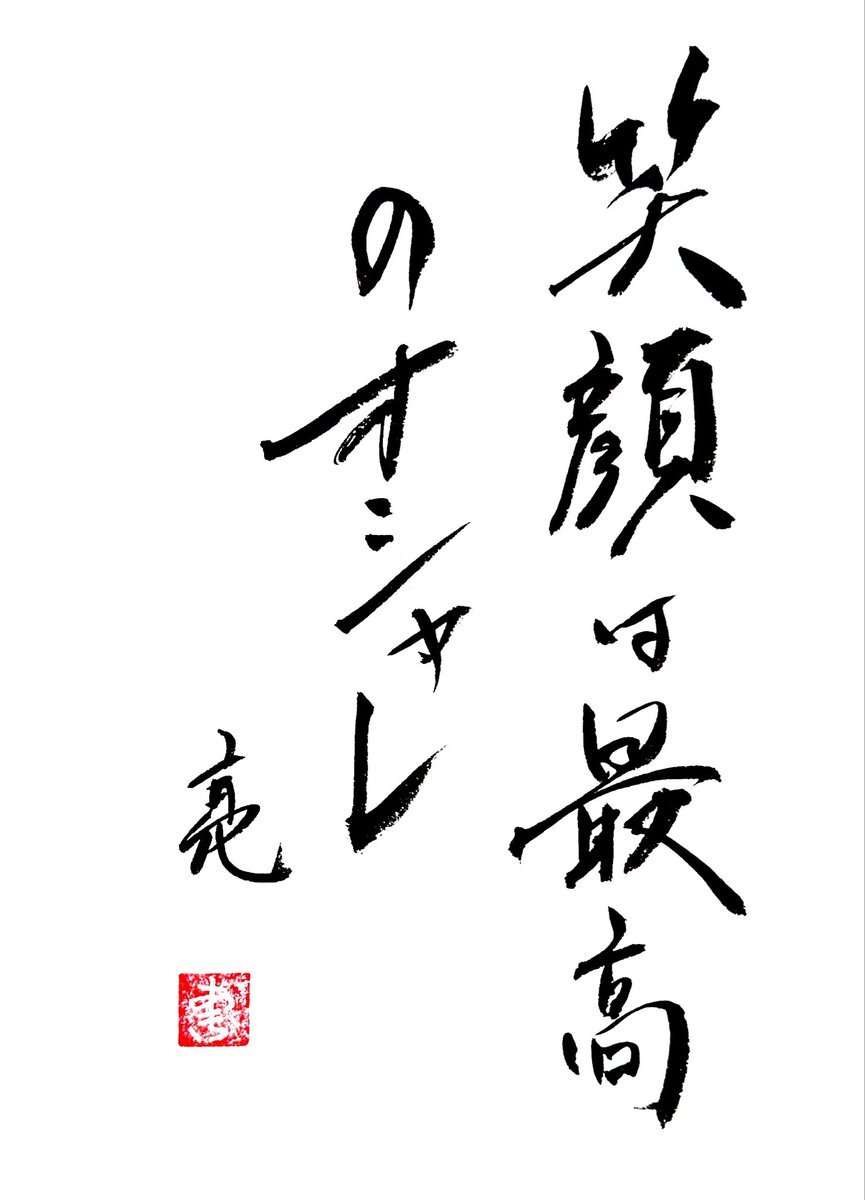 笑顔は最高
のオシャレ
亮